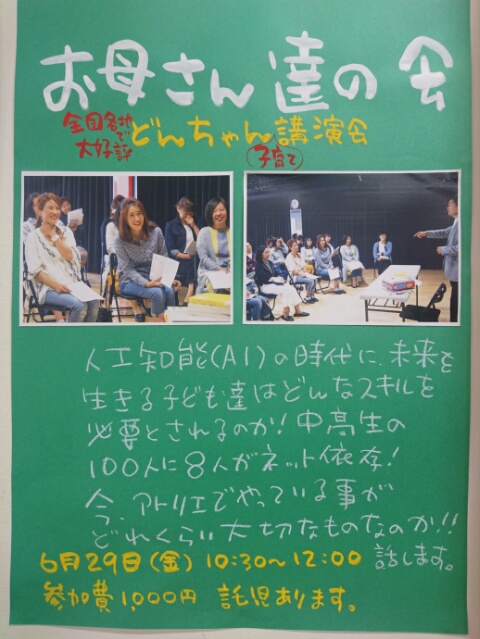 お母さん達の会
全国各地で大好評
どんちゃん講演会
子育て
人工知能(AI)の時代に、未来を
生きる子ども達はどんなスキルを
必要とされるのか!中高生の
100人に8人がネット依存!
今、アトリエでやっている事が
どれくらい大切なものなのか!!
話します。
6月29日(金) 10:30~12:00
参加費1,000円 託児あります。